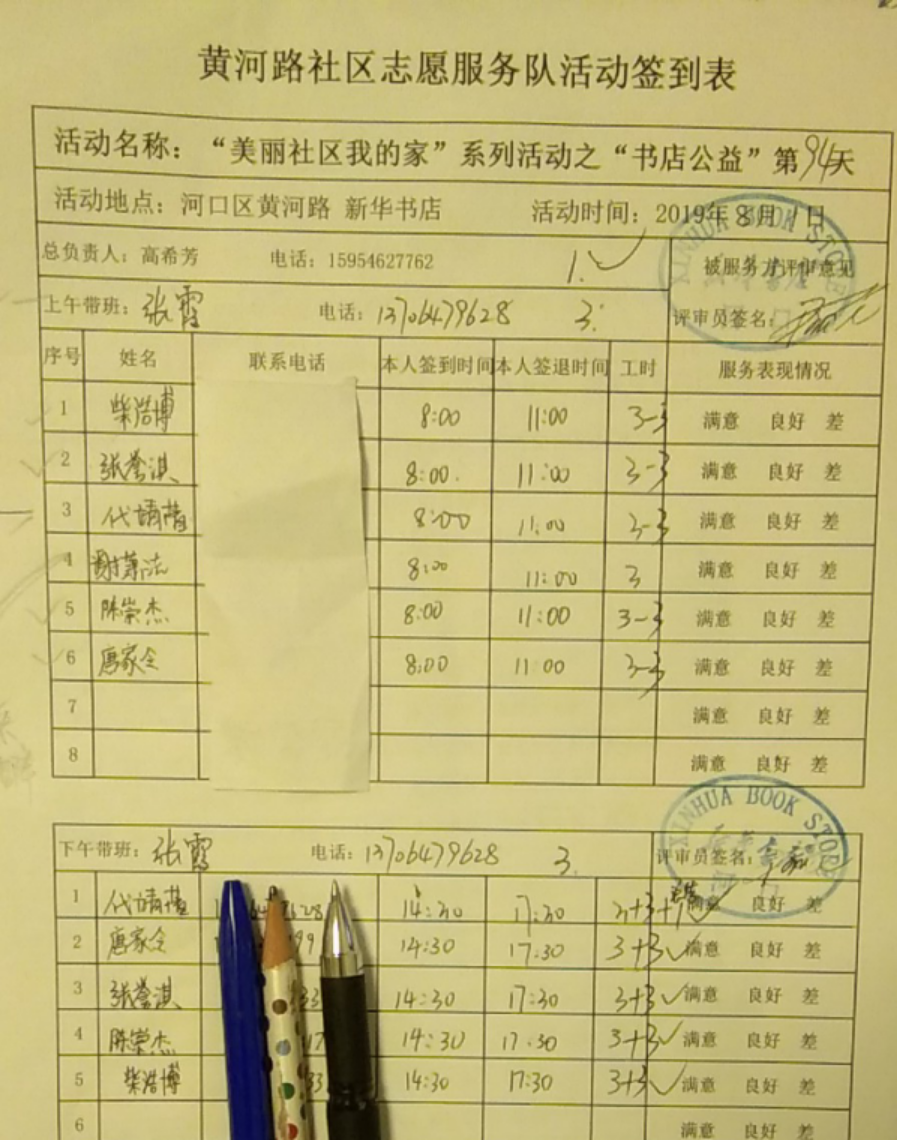 黄河路社区志愿服务队活动签到表
活动名称：“美丽社区我的家”系列活动之“书店公益”第94天
活动地点：河口区黄河路 新华书店 活动时间：2019年8月1日
总负责人：高希芳 电话：15954627762 1.✓ 被服务方评审意见
上午带班：张霞 电话：13706479628 3. 评审员签名：
XINHUA BOOK STORE
序号 姓名 联系电话 本人签到时间 本人签退时间 工时 服务表现情况
1 柴浩博 8:00 11:00 3-3 满意 良好 差
2 张誉淇 8:00 11:00 3-3 满意 良好 差
3 代婧蕴 8:00 11:00 3-3 满意 良好 差
4 8:00 11:00 3 满意 良好 差
5 陈崇杰 8:00 11:00 3-3 满意 良好 差
6 唐家全 8:00 11:00 3-3 满意 良好 差
7 满意 良好 差
8 满意 良好 差
XINHUA BOOK STORE
下午带班：张霞 电话：13706479628 3. 评审员签名：
1 代婧蕴 14:30 17:30 3+3 满意 良好 差
2 唐家全 14:30 17:30 3+3 ✓ 满意 良好 差
3 张誉淇 14:30 17:30 3+3 ✓ 满意 良好 差
4 陈崇杰 14:30 17:30 3+3 ✓ 满意 良好 差
5 柴浩博 14:30 17:30 3+3 ✓ 满意 良好 差
6 满意 良好 差